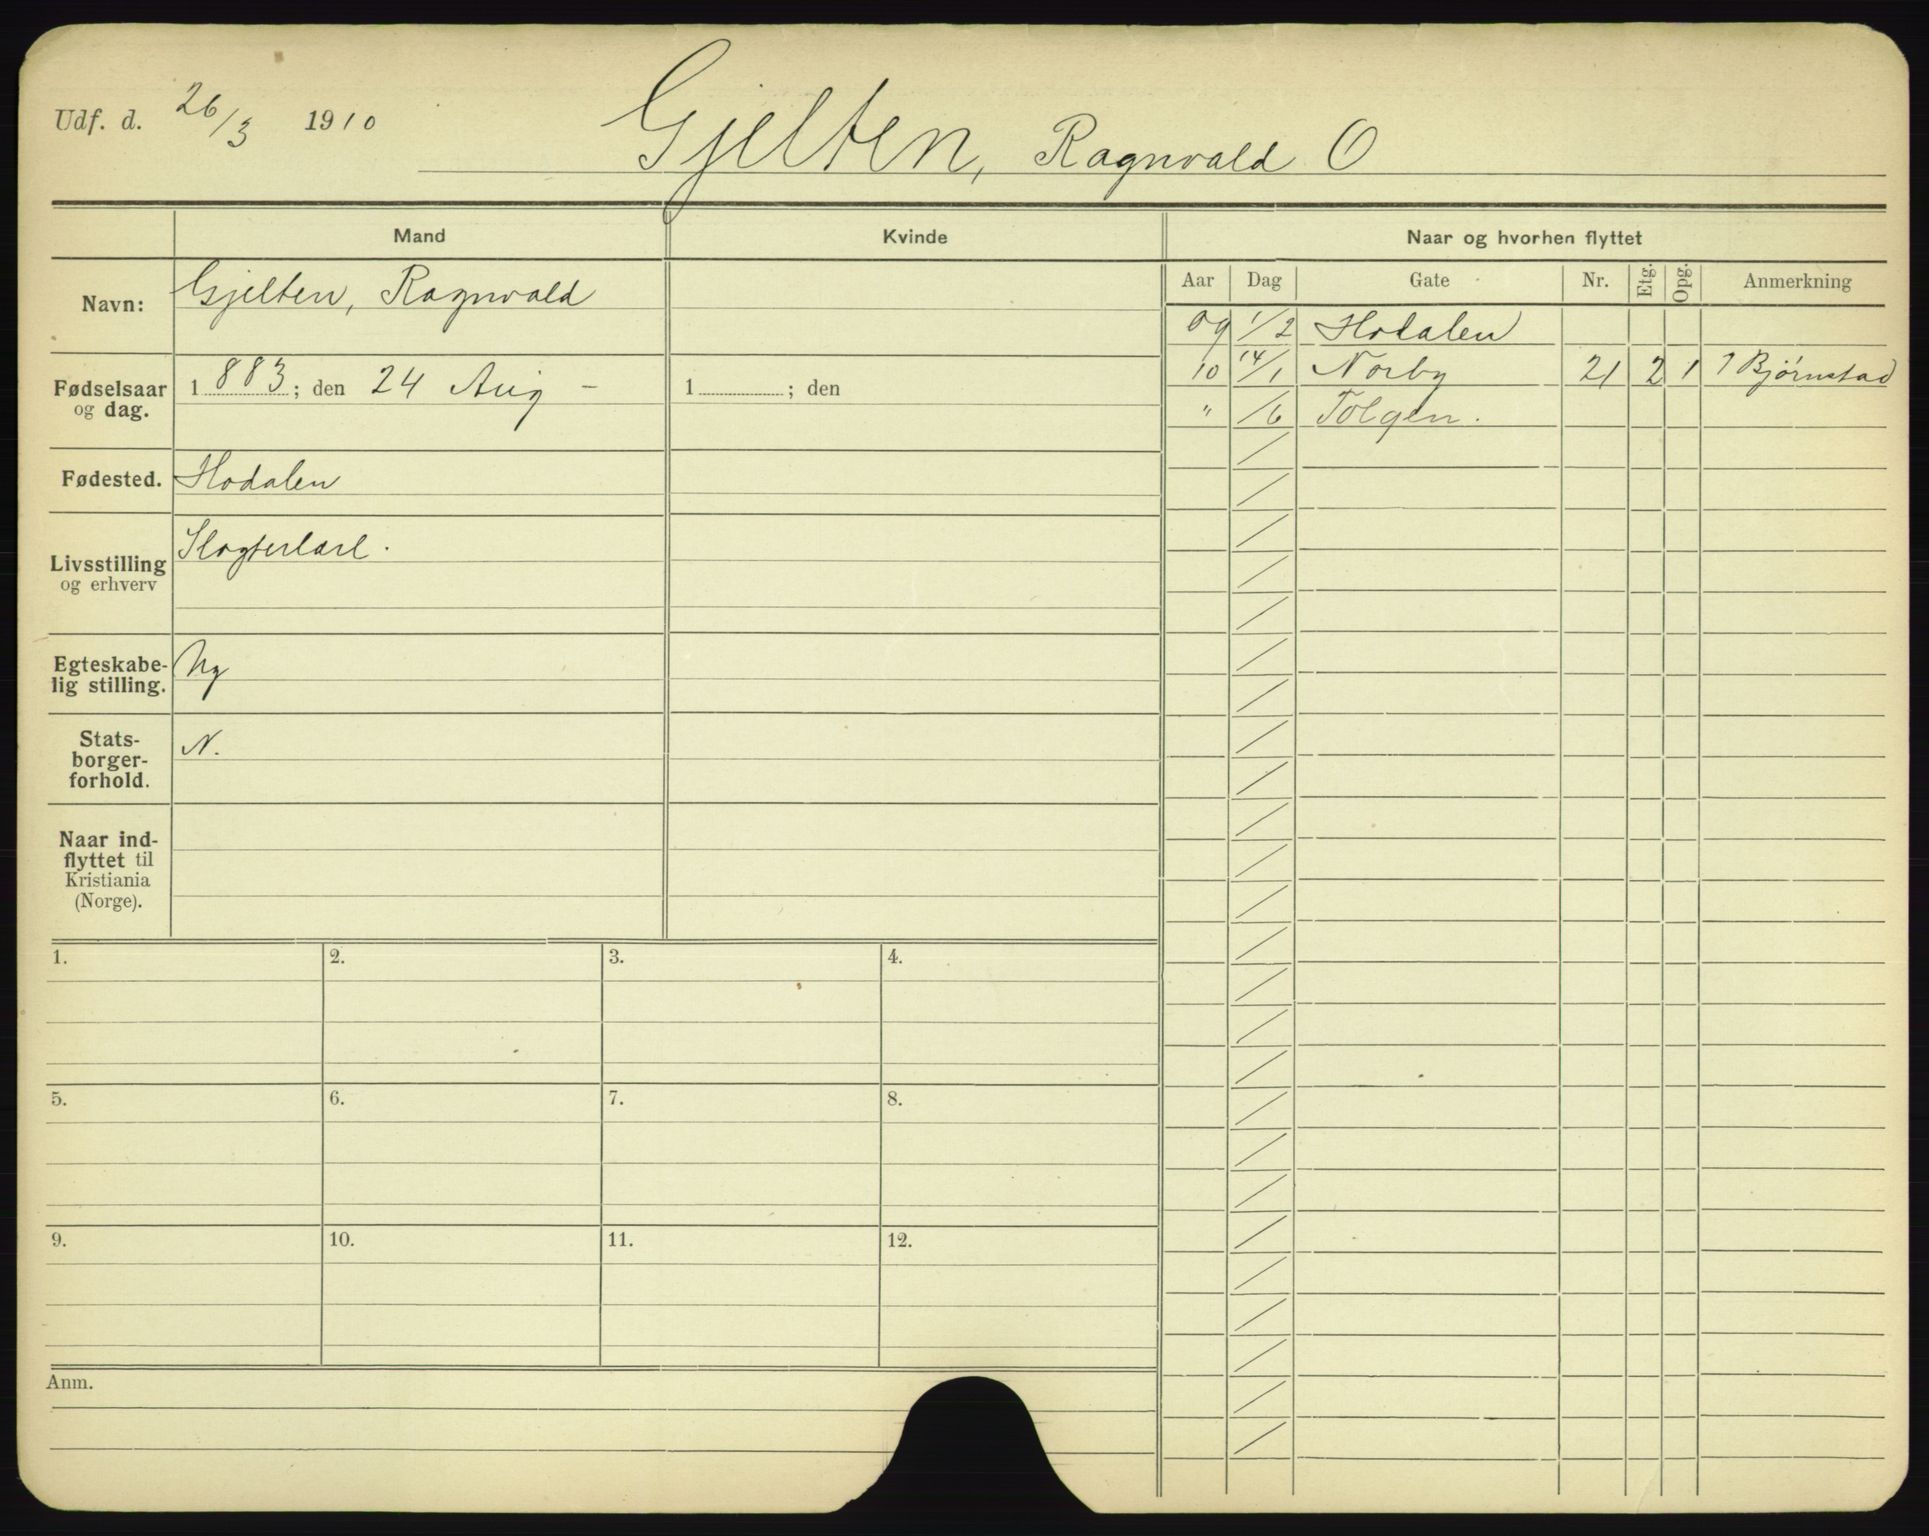 Udf. d. 26/3 1910
Gjelten, Ragnvald O
Mand Kvinde Naar og hvorhen flyttet
Aar Dag Gate Nr. Etg. Opg. Anmerkning
Navn: Gjelten, Ragnvald
Fødselsaar og dag. 1883; den 24 Aug – 1 ; den
Fødested. Hodalen
Livsstilling og erhverv Slagterlærl.
Egteskabe-
lig stilling. Ug
Stats-
borger-
forhold. N.
Naar ind-
flyttet til
Kristiania
(Norge).
09 1/2 Hodalen
10 14/1 Norby 21 2 1 Bjørnstad
" /6 Tolgen.
1. 2. 3. 4.
5. 6. 7. 8.
9. 10. 11. 12.
Anm.